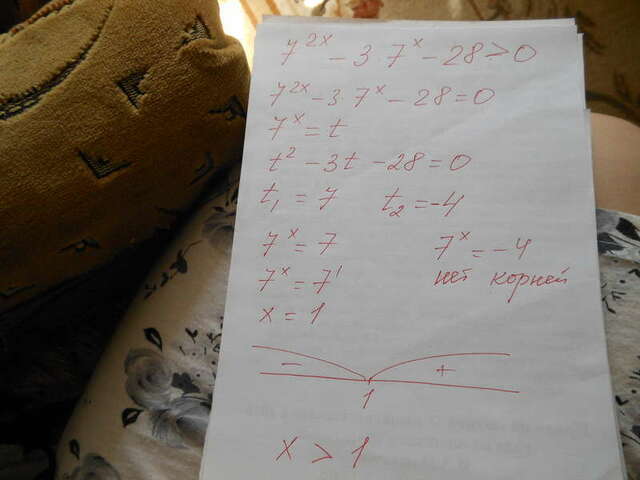 7^{2x} - 3 · 7^x - 28 > 0
7^{2x} - 3 · 7^x - 28 = 0
7^x = t
t^2 - 3t - 28 = 0
t_1 = 7 t_2 = -4
7^x = 7 7^x = -4
7^x = 7^1 нет корней
x = 1
- +
1
x > 1